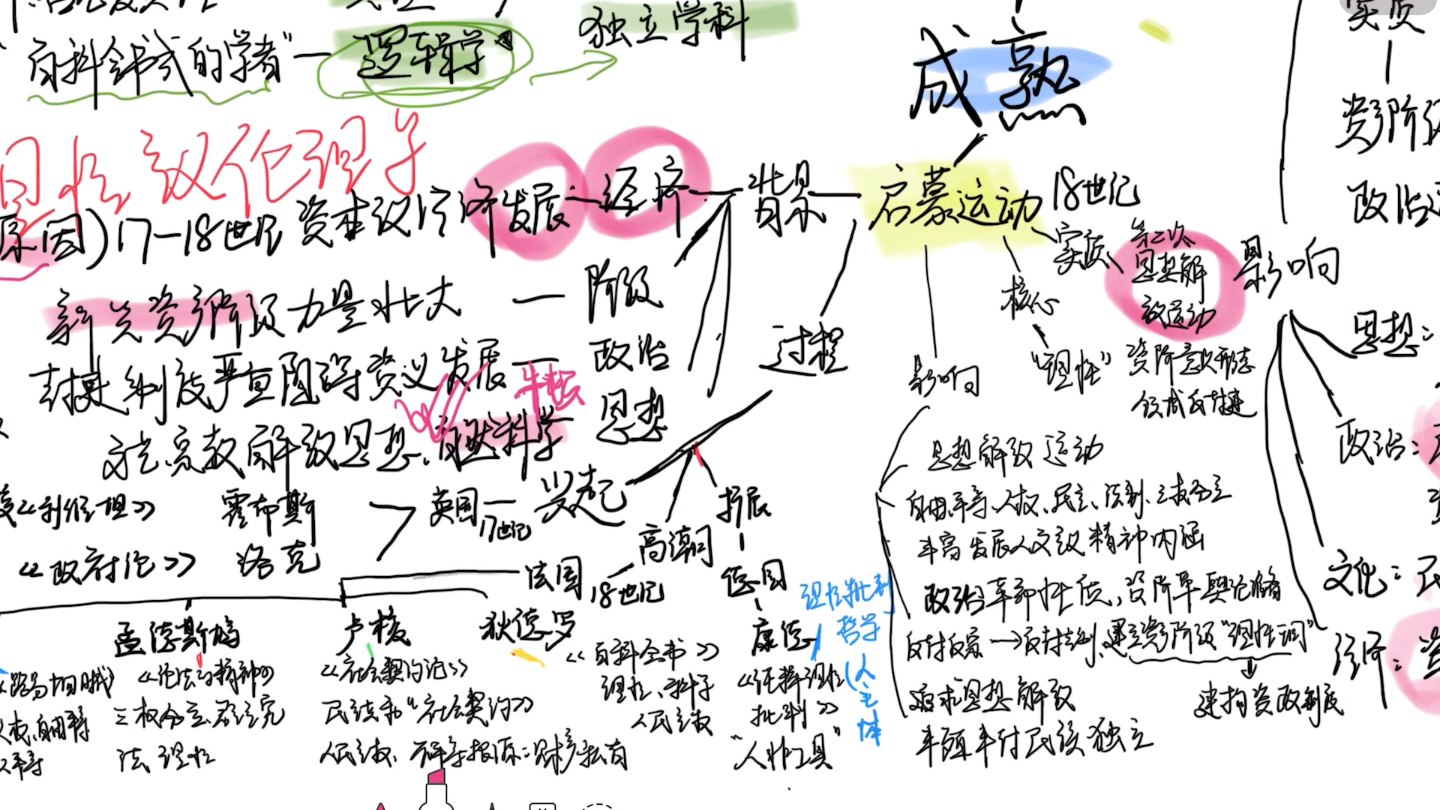 "百科全书式的学者"
逻辑学
独立学科
成熟
理性主义伦理学
原因)17-18世纪资本主义经济发展
经济
背景
启蒙运动
18世纪
实质
第二次
思想解
放运动
影响
新兴资产阶级力量壮大
阶级
核心
过程
封建制度严重阻碍资义发展
政治
"理性"
资阶意识形态
领域反封建
文艺、宗教解放思想、自然科学
牛顿
思想
影响
思想解放运动
自由、平等、人权、民主、法制、三权分立
丰富发展人文主义精神内涵
霍布斯
英国
17世纪
兴起
高潮
扩展
《政府论》
洛克
法国
18世纪
德国
孟德斯鸠
卢梭
狄德罗
康德
理性批判
哲学
(人
主
体
《论法的精神》
三权分立、君主立宪
法、理性
《社会契约论》
民法和"社会契约"
人民主权、不平等根源:财产私有
《百科全书》
理性、科学
人民主权
《纯粹理性
批判》
"人非工具"
反封反家→反封专制、建立资产阶级"理性王国"
建构资政制度
追求思想解放
民族独立
实质
资产阶级
政治
思想:
政治:
文化:
经济: